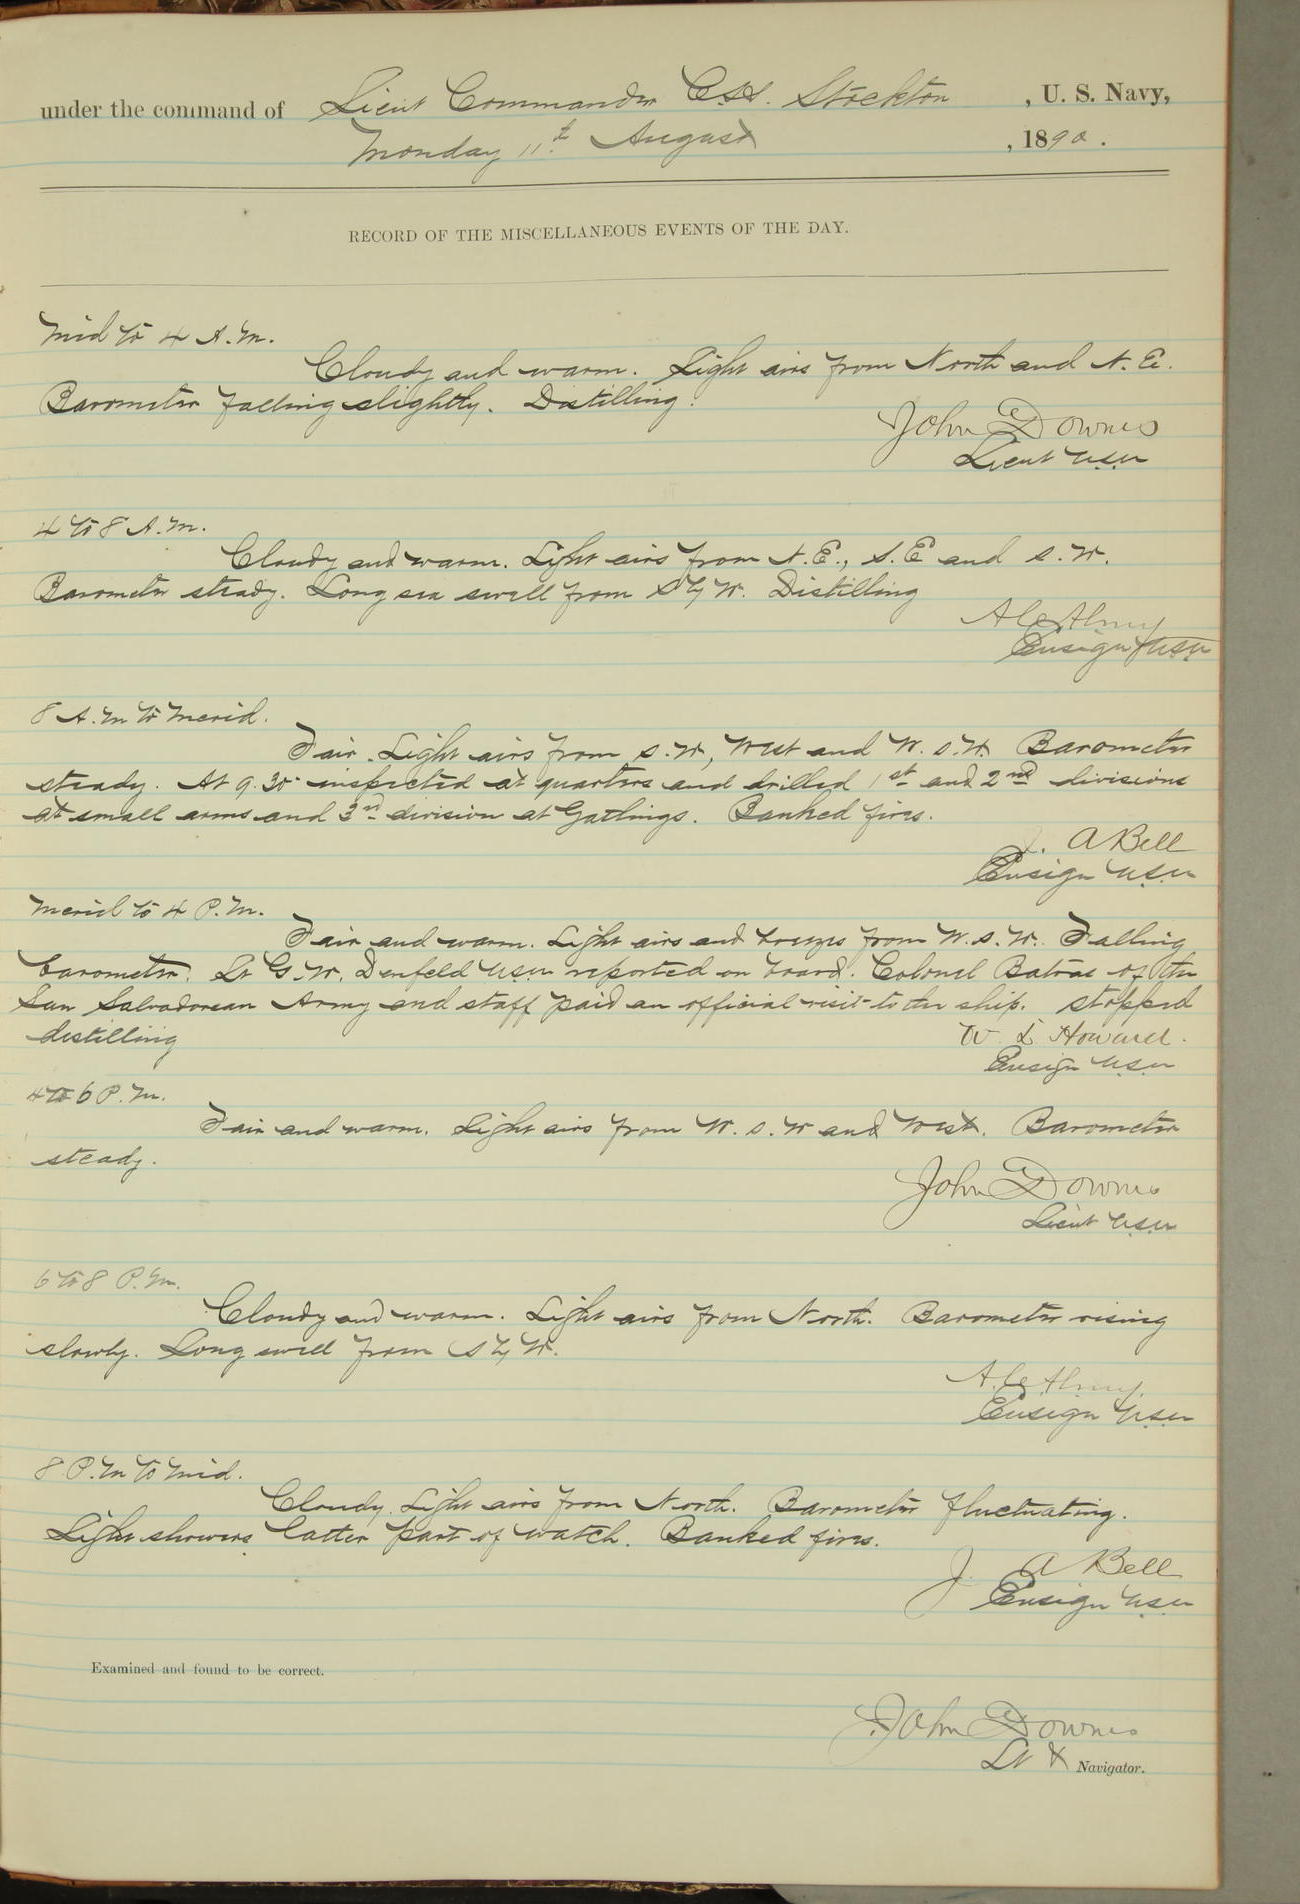 under the command of Lieut Commander C. H. Stockton , U. S. Navy,
Monday 11th August , 1890.
RECORD OF THE MISCELLANEOUS EVENTS OF THE DAY.
Mid to 4 A.M.
Cloudy and warm. Light airs from North and N.E.
Barometer falling slightly. Distilling.
John Downes
Lieut USN
4 to 8 A.M.
Cloudy and warm. Light airs from N.E., S.E and S.W.
Barometer steady. Long sea swell from S by W. Distilling
A C Almy
Ensign USN
8 A.M to Merid.
Fair. Light airs from S.W, West and W.S.W. Barometer
steady. At 9.30 inspected at quarters and drilled 1st and 2nd divisions
at small arms and 3rd division at Gatlings. Banked fires.
J. A Bell
Ensign USN
Merid to 4 P.M.
Fair and warm. Light airs and breezes from W.S.W. Falling
barometer. Lt G.W. Denfeld USN reported on board. Colonel Batras of the
San Salvadorean Army and staff paid an official visit to the ship. Stopped
distilling
W L Howard.
Ensign USN
4 to 6 P.M.
Fair and warm. Light airs from W.S.W and West. Barometer
steady.
John Downes
Lieut USN
6 to 8 P.M.
Cloudy and warm. Light airs from North. Barometer rising
slowly. Long swell from S by W.
A. C Almy.
Ensign USN
8 P.M to Mid.
Cloudy. Light airs from North. Barometer fluctuating.
Light showers latter part of watch. Banked fires.
J. A Bell
Ensign USN
Examined and found to be correct.
John Downes
Lt & Navigator.